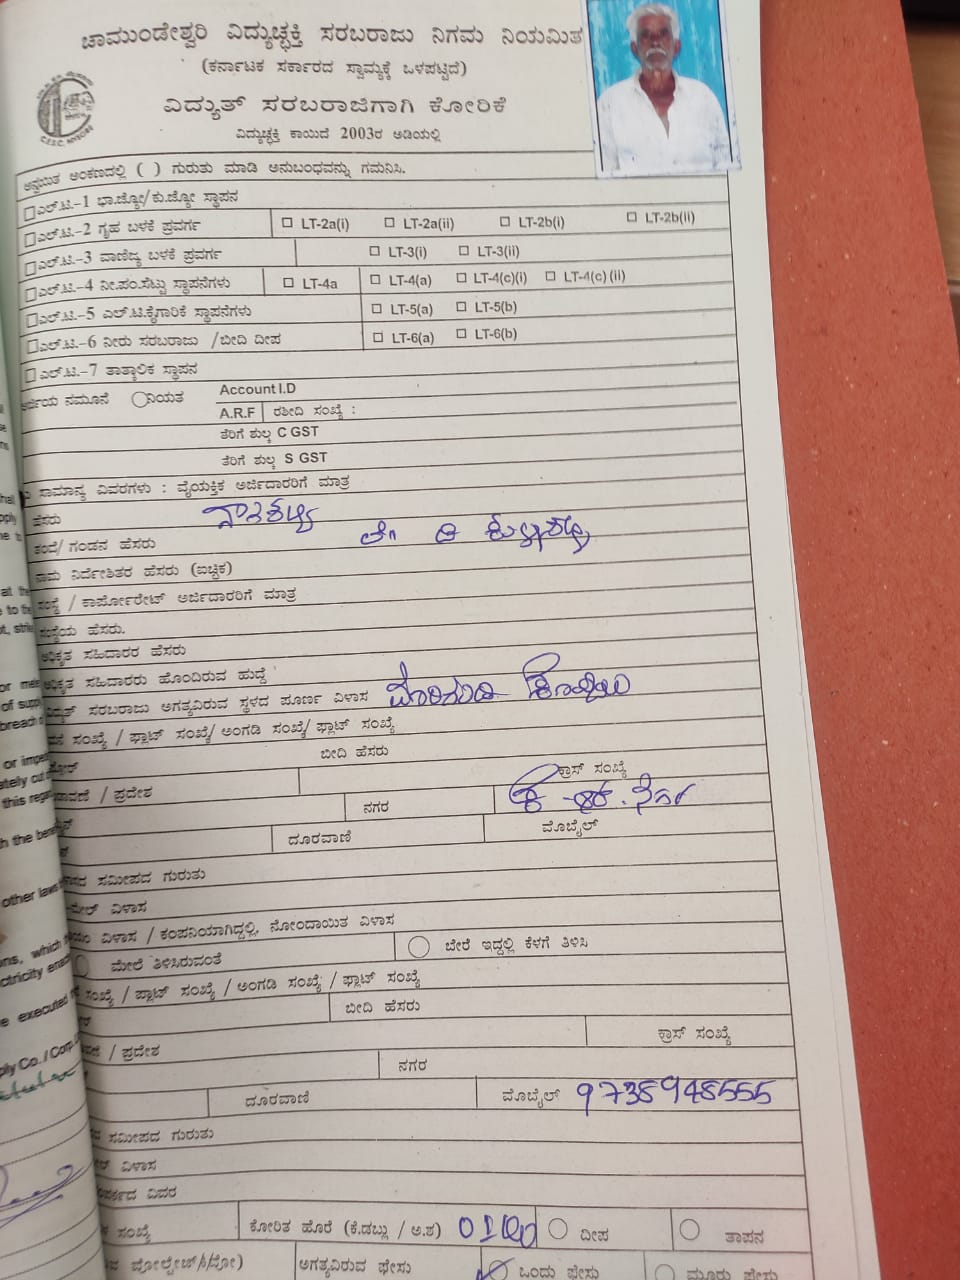 ಚಾಮುಂಡೇಶ್ವರಿ ವಿದ್ಯುಚ್ಛಕ್ತಿ ಸರಬರಾಜು ನಿಗಮ ನಿಯಮಿತ
(ಕರ್ನಾಟಕ ಸರ್ಕಾರದ ಸ್ವಾಮ್ಯಕ್ಕೆ ಒಳಪಟ್ಟಿದೆ)
ವಿದ್ಯುತ್ ಸರಬರಾಜಿಗಾಗಿ ಕೋರಿಕೆ
ವಿದ್ಯುಚ್ಛಕ್ತಿ ಕಾಯಿದೆ 2003ರ ಅಡಿಯಲ್ಲಿ
ಅನ್ವಯಿತ ಅಂಕಣದಲ್ಲಿ ( ) ಗುರುತು ಮಾಡಿ ಅನುಬಂಧವನ್ನು ಗಮನಿಸಿ.
ಎಲ್.ಟಿ.-1 ಭಾ.ಜ್ಯೋ/ಕು.ಜ್ಯೋ ಸ್ಥಾಪನ
ಎಲ್.ಟಿ.-2 ಗೃಹ ಬಳಕೆ ಪ್ರವರ್ಗ LT-2a(i) LT-2a(ii) LT-2b(i) LT-2b(ii)
ಎಲ್.ಟಿ.-3 ವಾಣಿಜ್ಯ ಬಳಕೆ ಪ್ರವರ್ಗ LT-3(i) LT-3(ii)
ಎಲ್.ಟಿ.-4 ನೀ.ಪಂ.ಸೆಟ್ಟು ಸ್ಥಾಪನೆಗಳು LT-4a LT-4(a) LT-4(c)(i) LT-4(c) (ii)
ಎಲ್.ಟಿ.-5 ಎಲ್.ಟಿ.ಕೈಗಾರಿಕೆ ಸ್ಥಾಪನೆಗಳು LT-5(a) LT-5(b)
ಎಲ್.ಟಿ.-6 ನೀರು ಸರಬರಾಜು /ಬೀದಿ ದೀಪ LT-6(a) LT-6(b)
ಎಲ್.ಟಿ.-7 ತಾತ್ಕಾಲಿಕ ಸ್ಥಾಪನ
ಅರ್ಜಿಯ ನಮೂನೆ ನಿಯತ Account I.D
A.R.F ರಶೀದಿ ಸಂಖ್ಯೆ :
ತೆರಿಗೆ ಶುಲ್ಕ C GST
ತೆರಿಗೆ ಶುಲ್ಕ S GST
ಸಾಮಾನ್ಯ ವಿವರಗಳು : ವೈಯಕ್ತಿಕ ಅರ್ಜಿದಾರರಿಗೆ ಮಾತ್ರ
ಹೆಸರು
ತಂದೆ/ ಗಂಡನ ಹೆಸರು
ನಾಮ ನಿರ್ದೇಶಿತರ ಹೆಸರು (ಐಚ್ಛಿಕ)
ಸಂಸ್ಥೆ / ಕಾರ್ಪೋರೇಟ್ ಅರ್ಜಿದಾರರಿಗೆ ಮಾತ್ರ
ಸಂಸ್ಥೆಯ ಹೆಸರು.
ಅಧಿಕೃತ ಸಹಿದಾರರ ಹೆಸರು
ಅಧಿಕೃತ ಸಹಿದಾರರು ಹೊಂದಿರುವ ಹುದ್ದೆ
ವಿದ್ಯುತ್ ಸರಬರಾಜು ಅಗತ್ಯವಿರುವ ಸ್ಥಳದ ಪೂರ್ಣ ವಿಳಾಸ
ಸಂಖ್ಯೆ / ಫ್ಲಾಟ್ ಸಂಖ್ಯೆ/ ಅಂಗಡಿ ಸಂಖ್ಯೆ/ ಫ್ಲಾಟ್ ಸಂಖ್ಯೆ
ಬೀದಿ ಹೆಸರು
ಕ್ರಾಸ್ ಸಂಖ್ಯೆ
/ ಪ್ರದೇಶ
ನಗರ ಕೆ.ಆರ್.ನಗರ
ದೂರವಾಣಿ ಮೊಬೈಲ್
ಸಮೀಪದ ಗುರುತು
ವಿಳಾಸ
ವಿಳಾಸ / ಕಂಪನಿಯಾಗಿದ್ದಲ್ಲಿ, ನೋಂದಾಯಿತ ವಿಳಾಸ
ಮೇಲೆ ತಿಳಿಸಿರುವಂತೆ ಬೇರೆ ಇದ್ದಲ್ಲಿ ಕೆಳಗೆ ತಿಳಿಸಿ
ಸಂಖ್ಯೆ / ಪ್ಲಾಟ್ ಸಂಖ್ಯೆ / ಅಂಗಡಿ ಸಂಖ್ಯೆ / ಫ್ಲಾಟ್ ಸಂಖ್ಯೆ
ಬೀದಿ ಹೆಸರು
ಕ್ರಾಸ್ ಸಂಖ್ಯೆ
/ ಪ್ರದೇಶ
ನಗರ
ದೂರವಾಣಿ ಮೊಬೈಲ್ 9738948555
ಸಮೀಪದ ಗುರುತು
ವಿಳಾಸ
ವಿವರ
ಸಂಖ್ಯೆ ಕೋರಿತ ಹೊರೆ (ಕೆ.ಡಬ್ಲು / ಅ.ಶ) ದೀಪ ತಾಪನ
ಅಗತ್ಯವಿರುವ ಫೇಸು ಒಂದು ಫೇಸು ಮೂರು ಫೇಸು